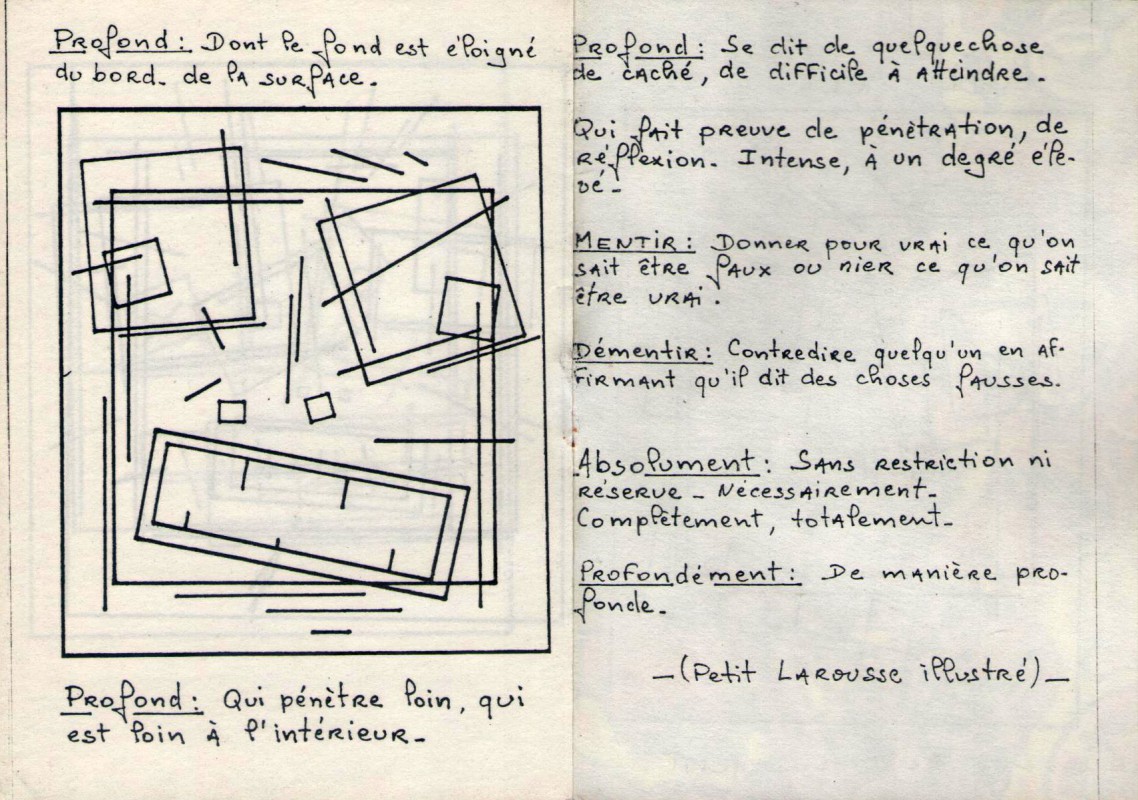 Profond : Dont le fond est éloigné
du bord. de la surface.
Profond : Qui pénètre loin, qui
est loin à l'intérieur_
Profond : Se dit de quelquechose
de caché, de difficile à atteindre.
Qui fait preuve de pénètration, de
réfflexion. Intense, à un degré éle-
vé_
MENTIR : Donner pour vrai ce qu'on
sait être faux ou nier ce qu'on sait
être vrai.
Démentir : Contredire quelqu'un en af-
firmant qu'il dit des choses fausses.
Absolument : Sans restriction ni
réserve _ Nécessairement_
Complètement, totalement_
Profondément : De manière pro-
fonde_
_(Petit LAROUSSE illustré)_